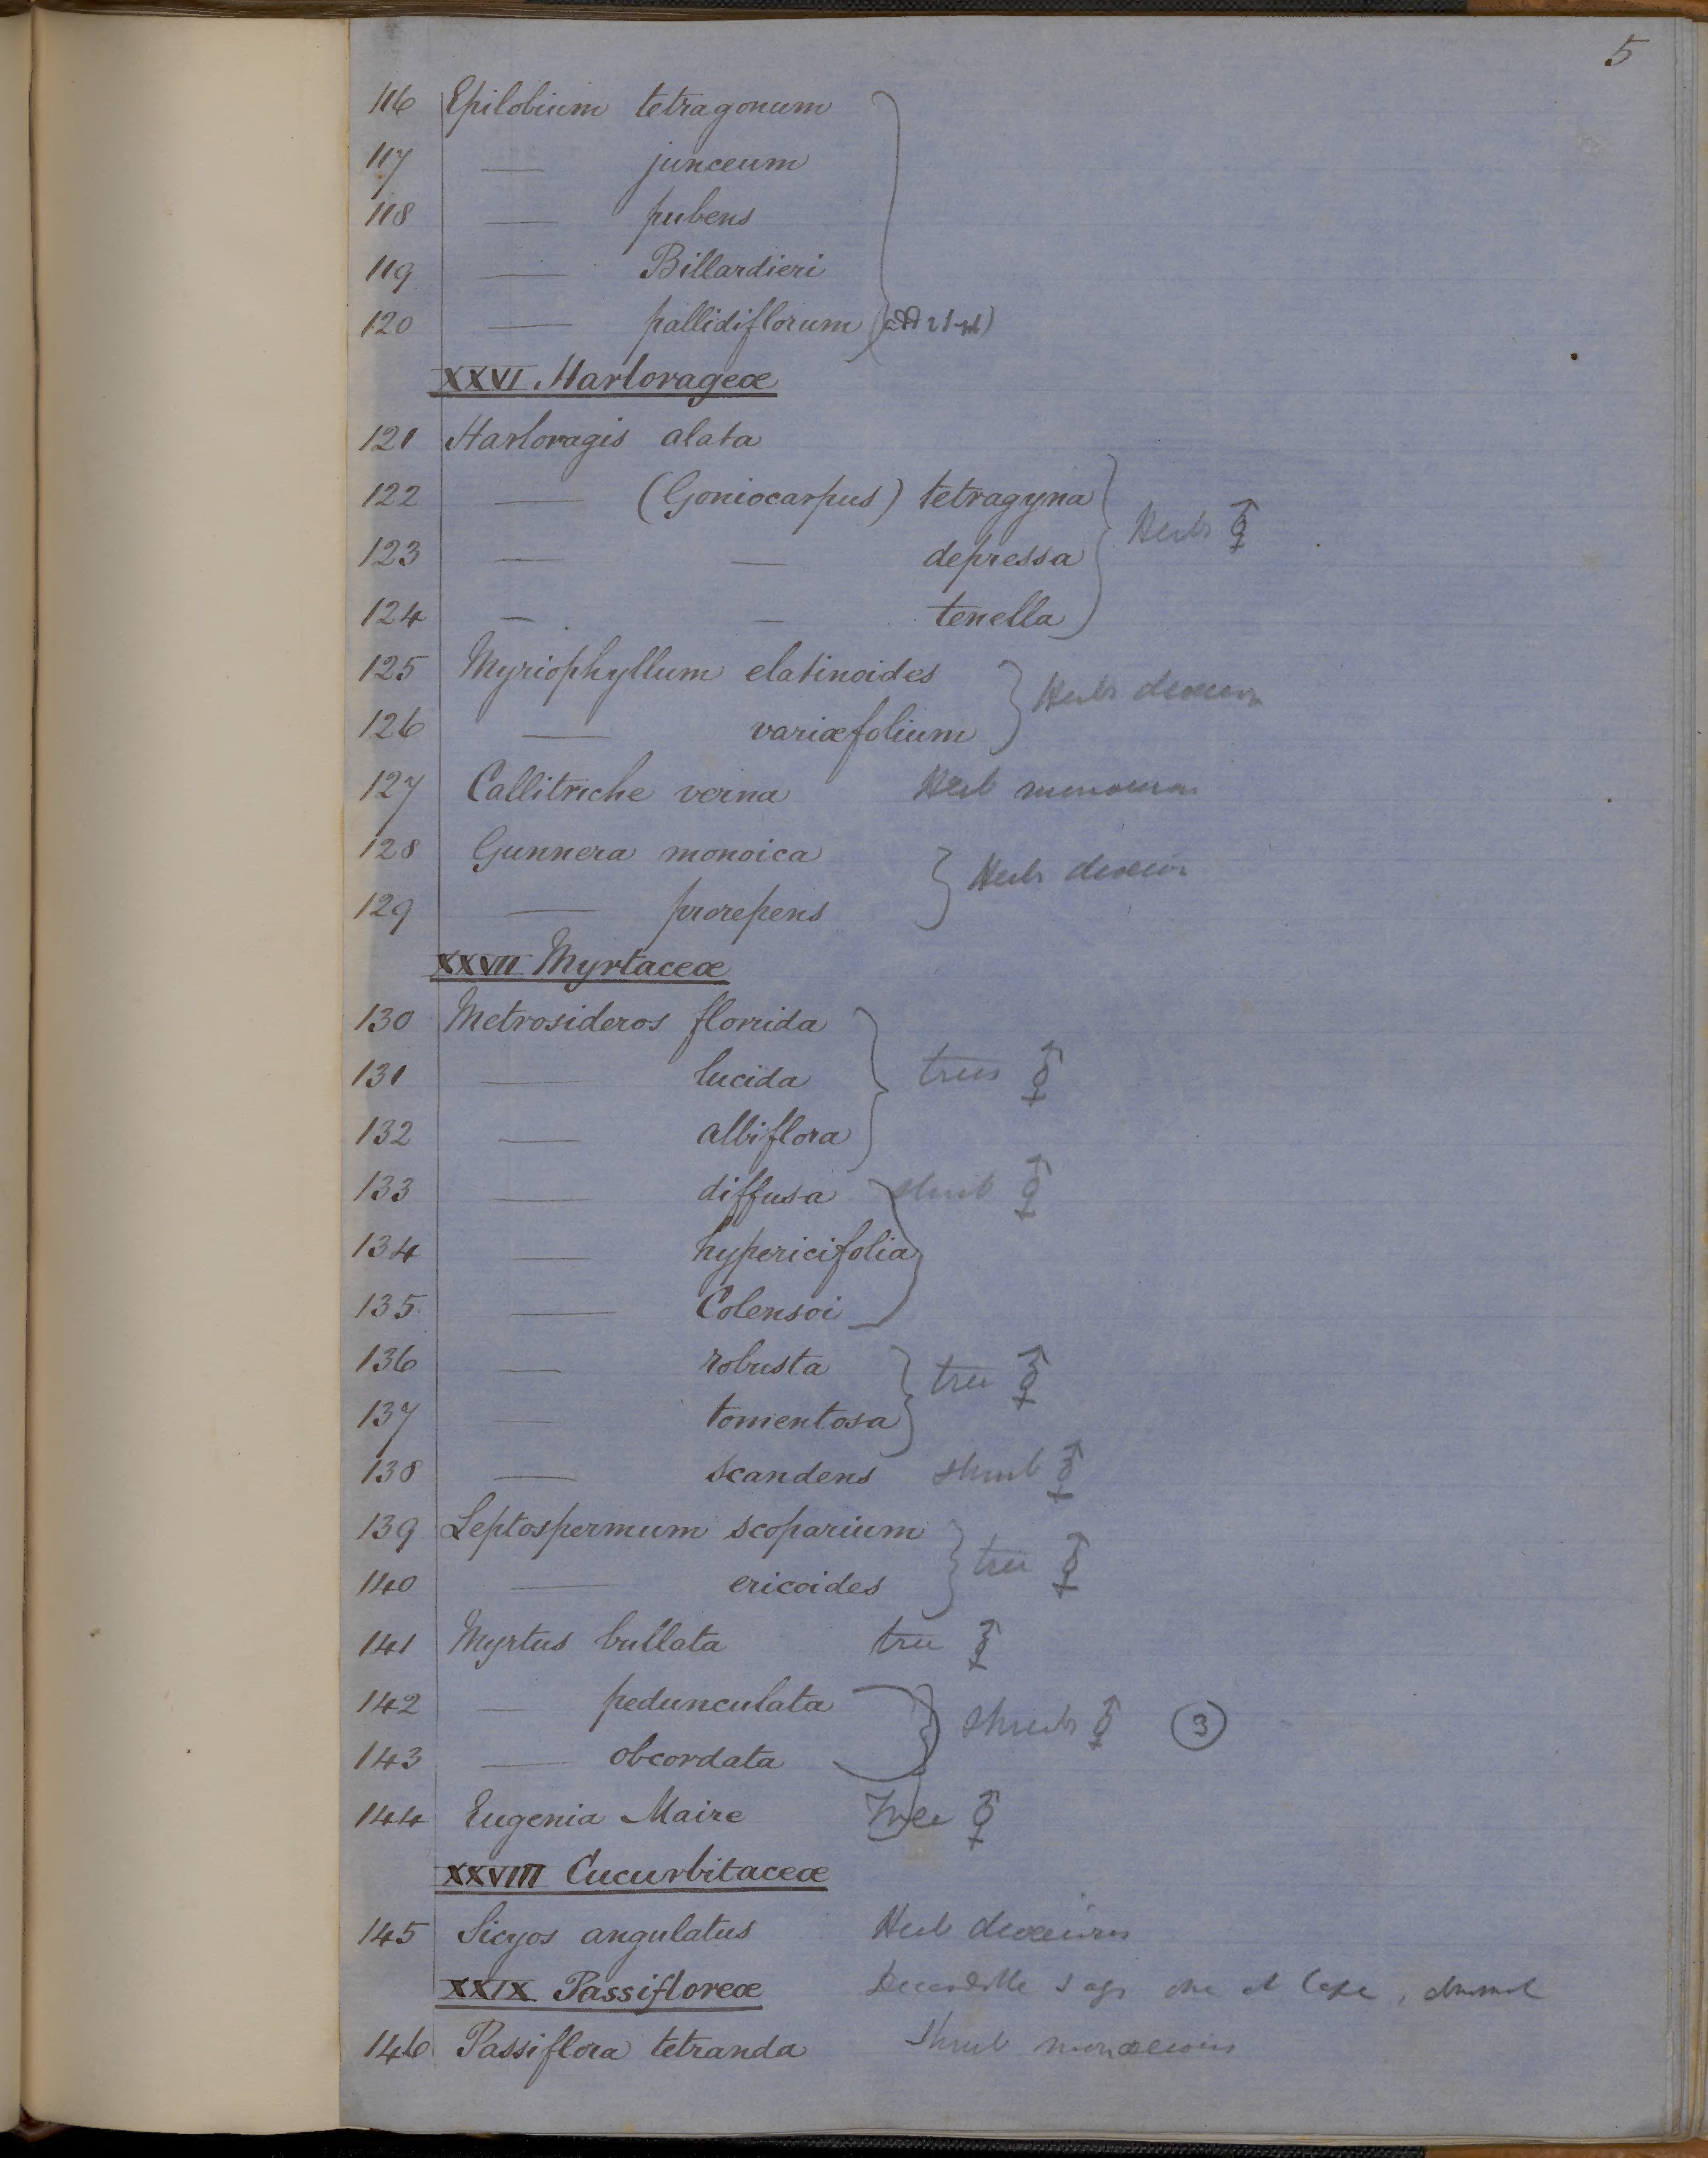 5
116 Epilobium tetragonum
117 — junceum
118 — pubens
119 — Billardieri
120 — pallidiflorum
XXVI. Harlorageæ
121 Harloragis alata
122 — (Goniocarpus) tetragyna
123 — — depressa Herbs ⚥
124 — — tenella
125 Myriophyllum elatinoides Herbs
126 — variæfolium
127 Callitriche verna Herb
128 Gunnera monoica Herbs
129 — prorepens
XXVII Myrtaceæ
130 Metrosideros florida
131 — lucida trees ⚥
132 — albiflora
133 — diffusa shrub ⚥
134 — hypericifolia
135 — Colensoi
136 — robusta tree ⚥
137 — tomentosa
138 — scandens shrub ⚥
139 Leptospermum scoparium tree ⚥
140 — ericoides
141 Myrtus bullata tree ⚥
142 — pedunculata shrubs ⚥ 3
143 — obcordata
144 Eugenia Maire Tree ⚥
XXVIII Cucurbitaceæ
145 Sicyos angulatus Herb
XXIX Passifloreæ
146 Passiflora tetranda Shrub